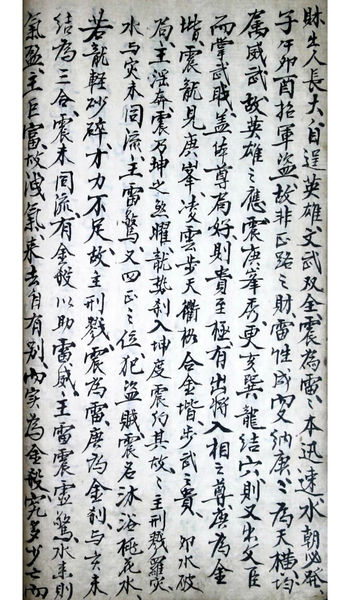 財生人長大自逞英雄文武双全震為雷之本迅速水朝必發
子午卯酉招軍盜故非正路之財雷性威又納庚之為天橫均
屬威武故英雄之應震庚峯秀更亥巽龍結穴則又出文臣
而掌武职盖体尊為好則貴至極有出將入相之尊庚為金
堦震龍見庚峯凌雲步天衢格合金堦步武之貴卯水破
局主淫奔震乃坤之煞曜龍無刹入坤度震約其故之主刑戮羅灾
水与亥未同流主雷驚又四正之位犯盜賊震名沐浴桃花水
若龍輕砂碎才力不足故主刑戮震為雷庚為金刹与亥未
結為三合震未同流有金殺以助雷威主雷震虛驚水来則
氣盈主巨富故洩氣来去自有别内实為金殺究多少亡而